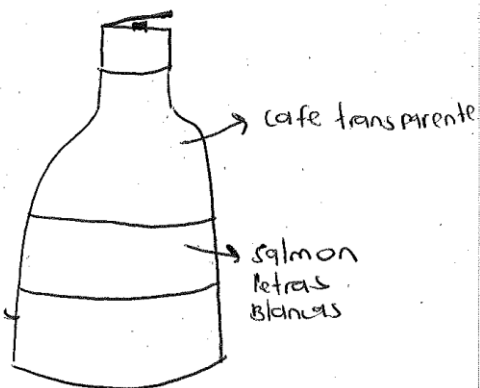 cafe transparente
salmon
letras
Blancas